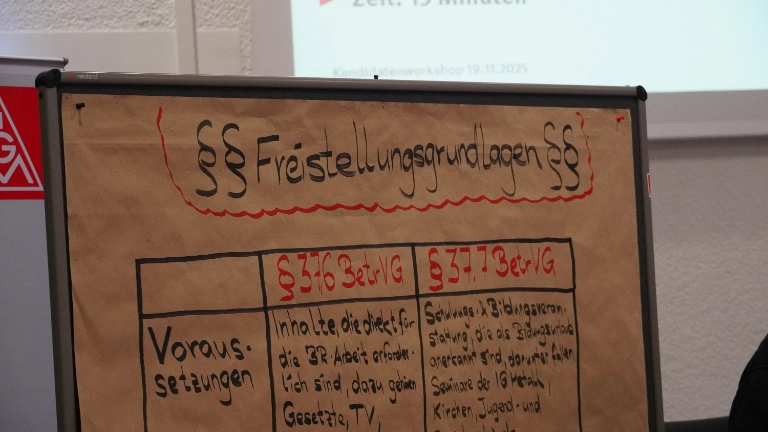 Zeit: 15 Minuten
Kandidatenworkshop 19.11.2025
§§ Freistellungsgrundlagen §§
§ 37.6 BetrVG
§ 37.7 BetrVG
Voraus-
setzungen
Inhalte, die direkt für
die BR-Arbeit erforder-
lich sind, dazu gehören
Gesetzte, TV,
Schulungs- & Bildungsveran-
staltung, die als Bildungsurlaub
anerkannt sind, darunter fallen
Seminare der IG Metall,
Kirchen, Jugend- und